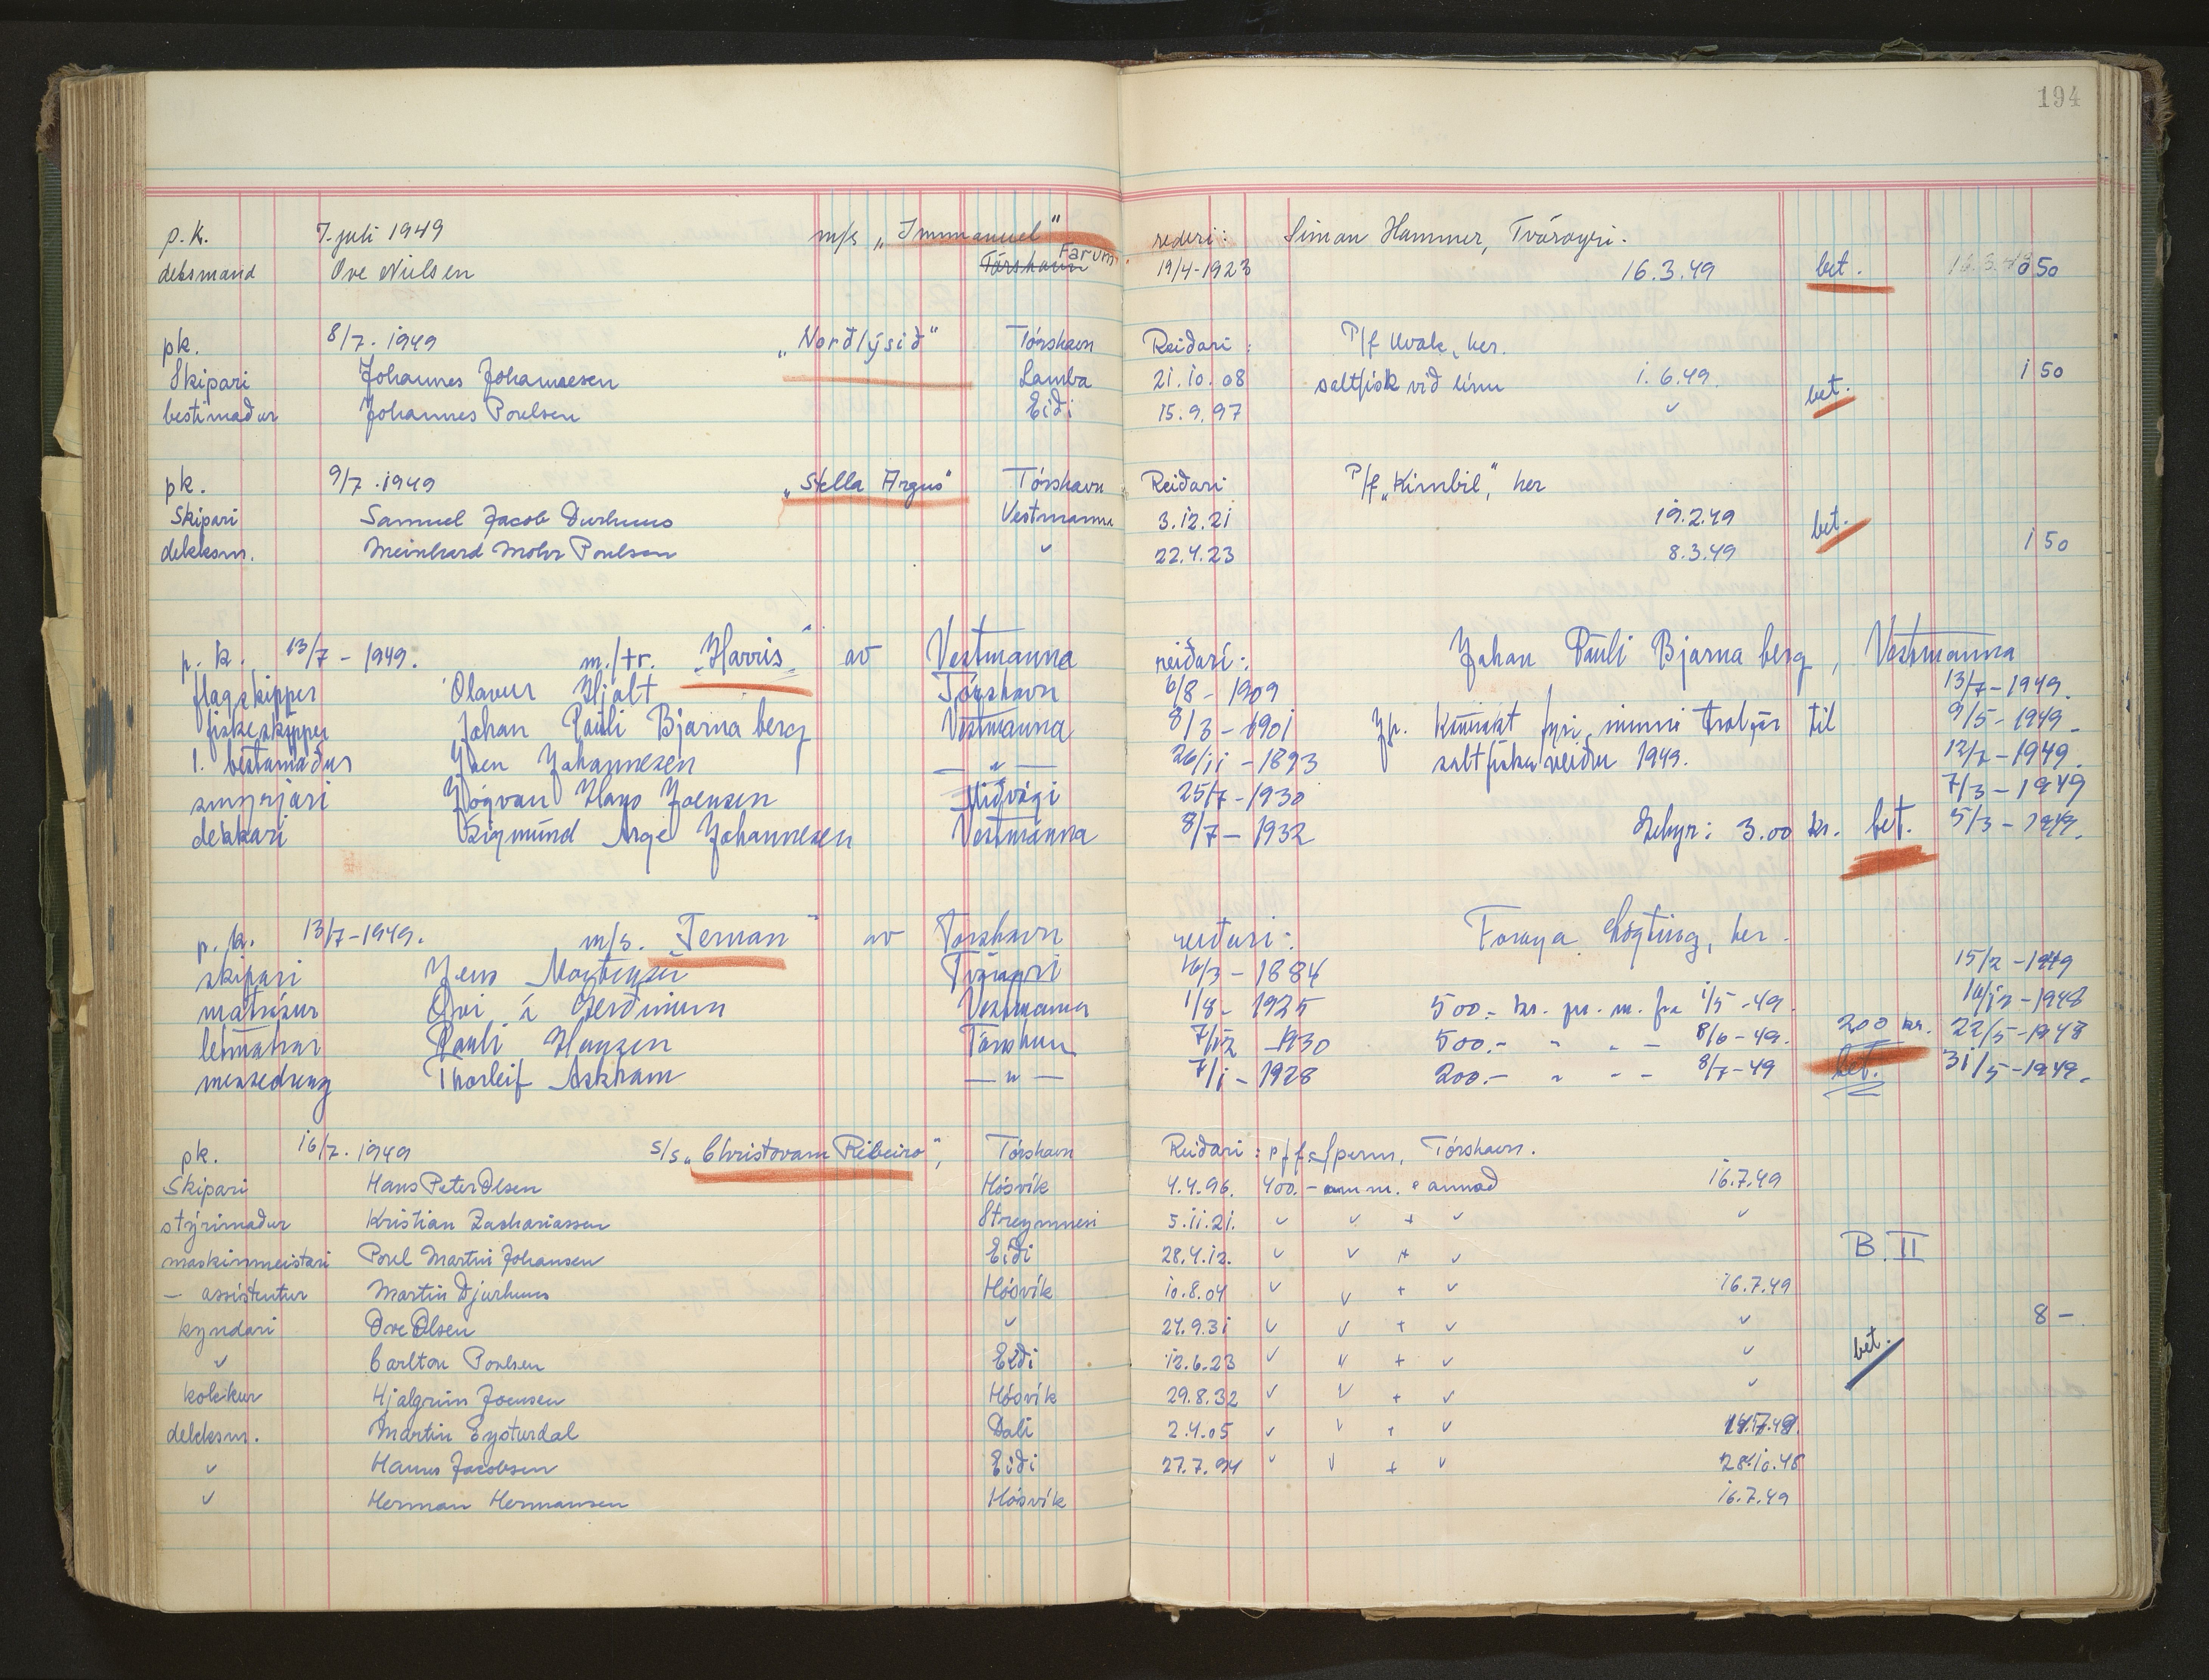 194
p.k. 7. juli 1949 m/s „Immanuel" rederi: Simon Hammer, Tvöroyri.
deksmand Ove Nielsen Tórshavn Farum. 19/4-1923 16.3.49 bet. 0 50
pk. 8/7. 1949 „Norðlýsið" Tórshavn Reiðari: P/f Kvak, her.
Skipari Johannes Johannesen Lamba 21.10.08 saltfisk við línu 1.6.49. bet. 1 50
bestimaður Johannes Poulsen Eiði 15.9.97 〃
pk. 9/7. 1949 „Stella Argus" Tórshavn Reiðari P/f „Kimbil", her
Skipari Samuel Jacob Durhuus Vestmanna 3.12.21 19.2.49 bet.
dekksm. Meinhard Mohr Poulsen 〃 22.4.23 8.3.49 1 50
p.k. 13/7 - 1949. m./tr. „Harris" av Vestmanna reiðari: Johan Pauli Bjarnaberg, Vestmanna
flagskipper Olavur Hjalt Tórshavn 6/8 - 1909 13/7 - 1949.
fiskeskipper Johan Pauli Bjarnaberg Vestmanna 8/3 - 1901 Jfr. fyri minni trolarar til 9/5 - 1949.
1. bestamaður Johannesen — 〃 — 26/11 - 1893 saltfiskaveiðu 1949. 12/2 - 1949.
smyrjari Jógvan Hans Joensen Miðvági 25/7 - 1930 7/3 - 1949
dekkari Sigmund Arge Johannesen Vestmanna 8/7 - 1932 3.00 kr. bet. 5/3 - 1949.
p.k. 13/7 - 1949. m/s. „Ternan" av Tórshavn reiðari: Føroya Løgting, her.
skipari Jens Tvöroyri 16/3 - 1884 15/2 - 1949
matrósur Ovi í Gerðinum Vestmanna 1/8 - 1925 500.- kr. pr. m. fra 1/5 - 49. 16/12 - 1948
letmatrar Pauli Hansen Tórshavn 7/12 - 1930 500.- 〃 〃 - 8/6 - 49. 200 kr. 22/5 - 1948
messedreng Thorleif Askham — 〃 — 7/1 - 1928 200.- 〃 - - 8/7 - 49 bet. 31/5 - 1949.
pk. 16/7. 1949 s/s „Christovam Ribeiro", Tórshavn Reiðari: p/f Sperm, Tórshavn.
Skipari Hans Peter Olsen Hósvík 4.4.96. 400.- um m. + annað 16.7.49
stýrimaður Kristian Zachariassen Streymnesi 5.11.21. 〃 〃 + 〃 〃
maskinmeistari Poul Martin Johansen Eiði 28.4.12. 〃 〃 + 〃 B. II
— assistentur Martin Djurhuus Hósvík 10.8.04 〃 〃 + 〃 16.7.49
kyndari Ove Olsen 〃 24.9.31 〃 〃 + 〃 〃 8 -
〃 Carlton Poulsen Eiði 12.6.23 〃 〃 + 〃 〃 bet.
kokkur Hjalgrim Joensen Hósvík 29.8.32 〃 〃 + 〃 〃
dekksm. Martin Eysturdal Dali 2.4.05 〃 〃 + 〃
〃 Hanus Jacobsen Eiði 27.7.94 〃 〃 + 〃 28.10.48
〃 Herman Hermansen Hósvík 16.7.49